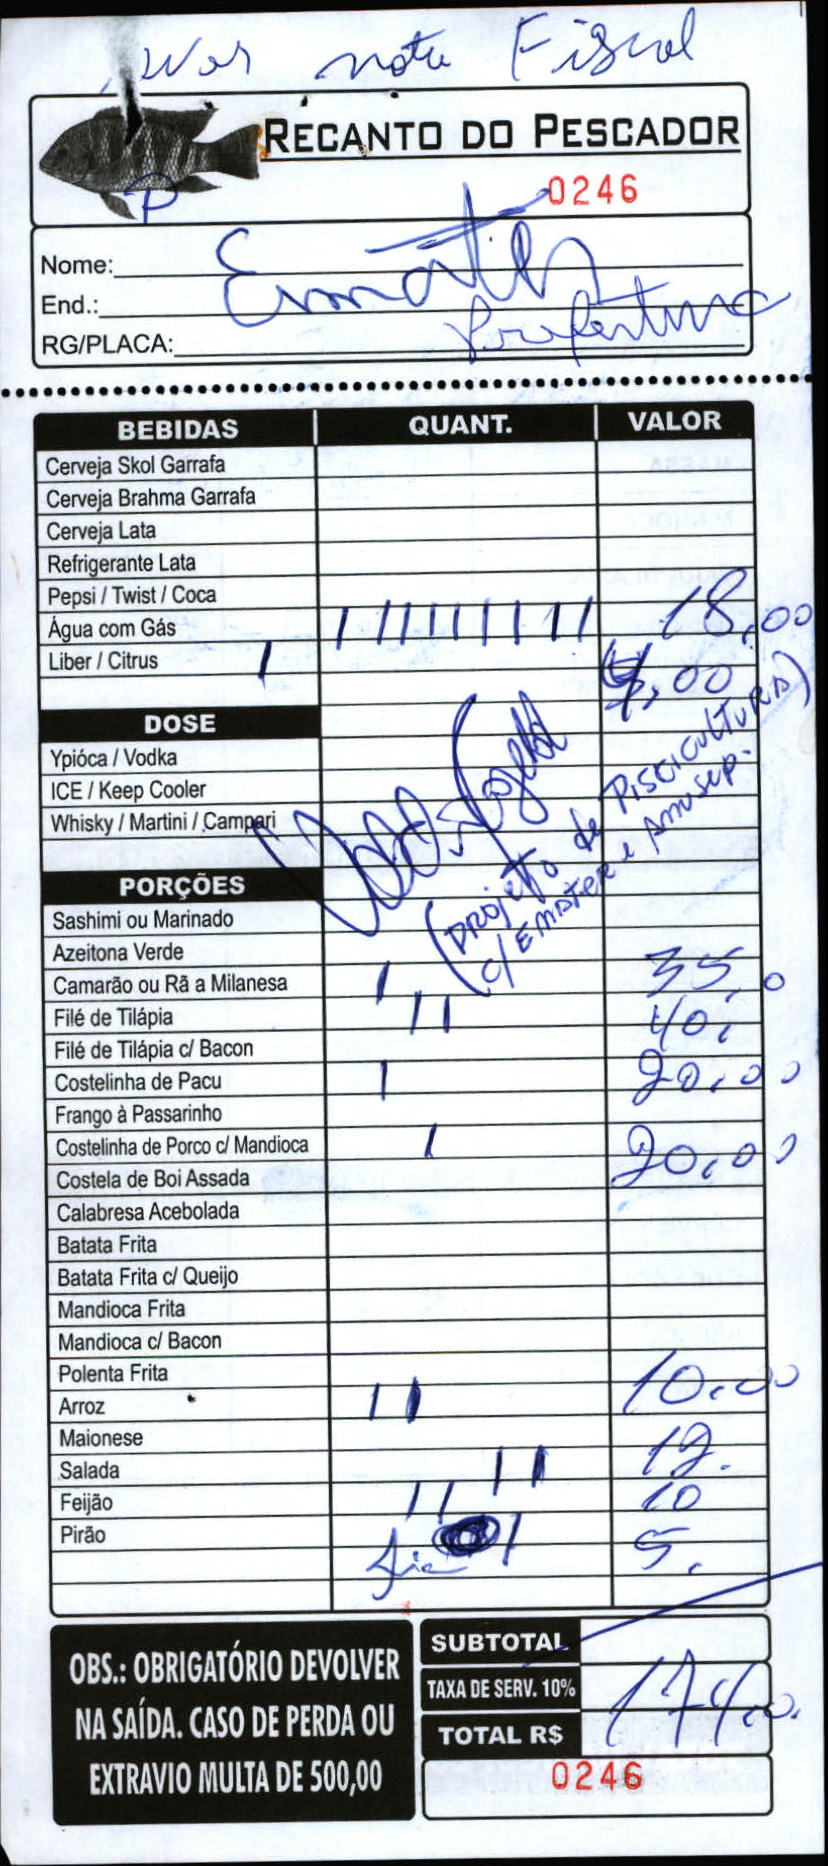 nota Fiscal
RECANTO DO PESCADOR
0246
P
Nome:
End.:
RG/PLACA:
Prefeitura
BEBIDAS QUANT. VALOR
Cerveja Skol Garrafa
Cerveja Brahma Garrafa
Cerveja Lata
Refrigerante Lata
Pepsi / Twist / Coca
Água com Gás 18,00
Liber / Citrus 4,00
DOSE
Ypióca / Vodka
ICE / Keep Cooler
Whisky / Martini / Campari
(projeto de PISCICULTURA)
c/ EMATER e Amusep.
PORÇÕES
Sashimi ou Marinado
Azeitona Verde
Camarão ou Rã a Milanesa 35,0
Filé de Tilápia 40,
Filé de Tilápia c/ Bacon
Costelinha de Pacu 20,00
Frango à Passarinho
Costelinha de Porco c/ Mandioca 20,00
Costela de Boi Assada
Calabresa Acebolada
Batata Frita
Batata Frita c/ Queijo
Mandioca Frita
Mandioca c/ Bacon
Polenta Frita
Arroz 10,00
Maionese
Salada 12.
Feijão 10
Pirão 5,
OBS.: OBRIGATÓRIO DEVOLVER
NA SAÍDA. CASO DE PERDA OU
EXTRAVIO MULTA DE 500,00
SUBTOTAL
TAXA DE SERV. 10% 174,0.
TOTAL R$
0246